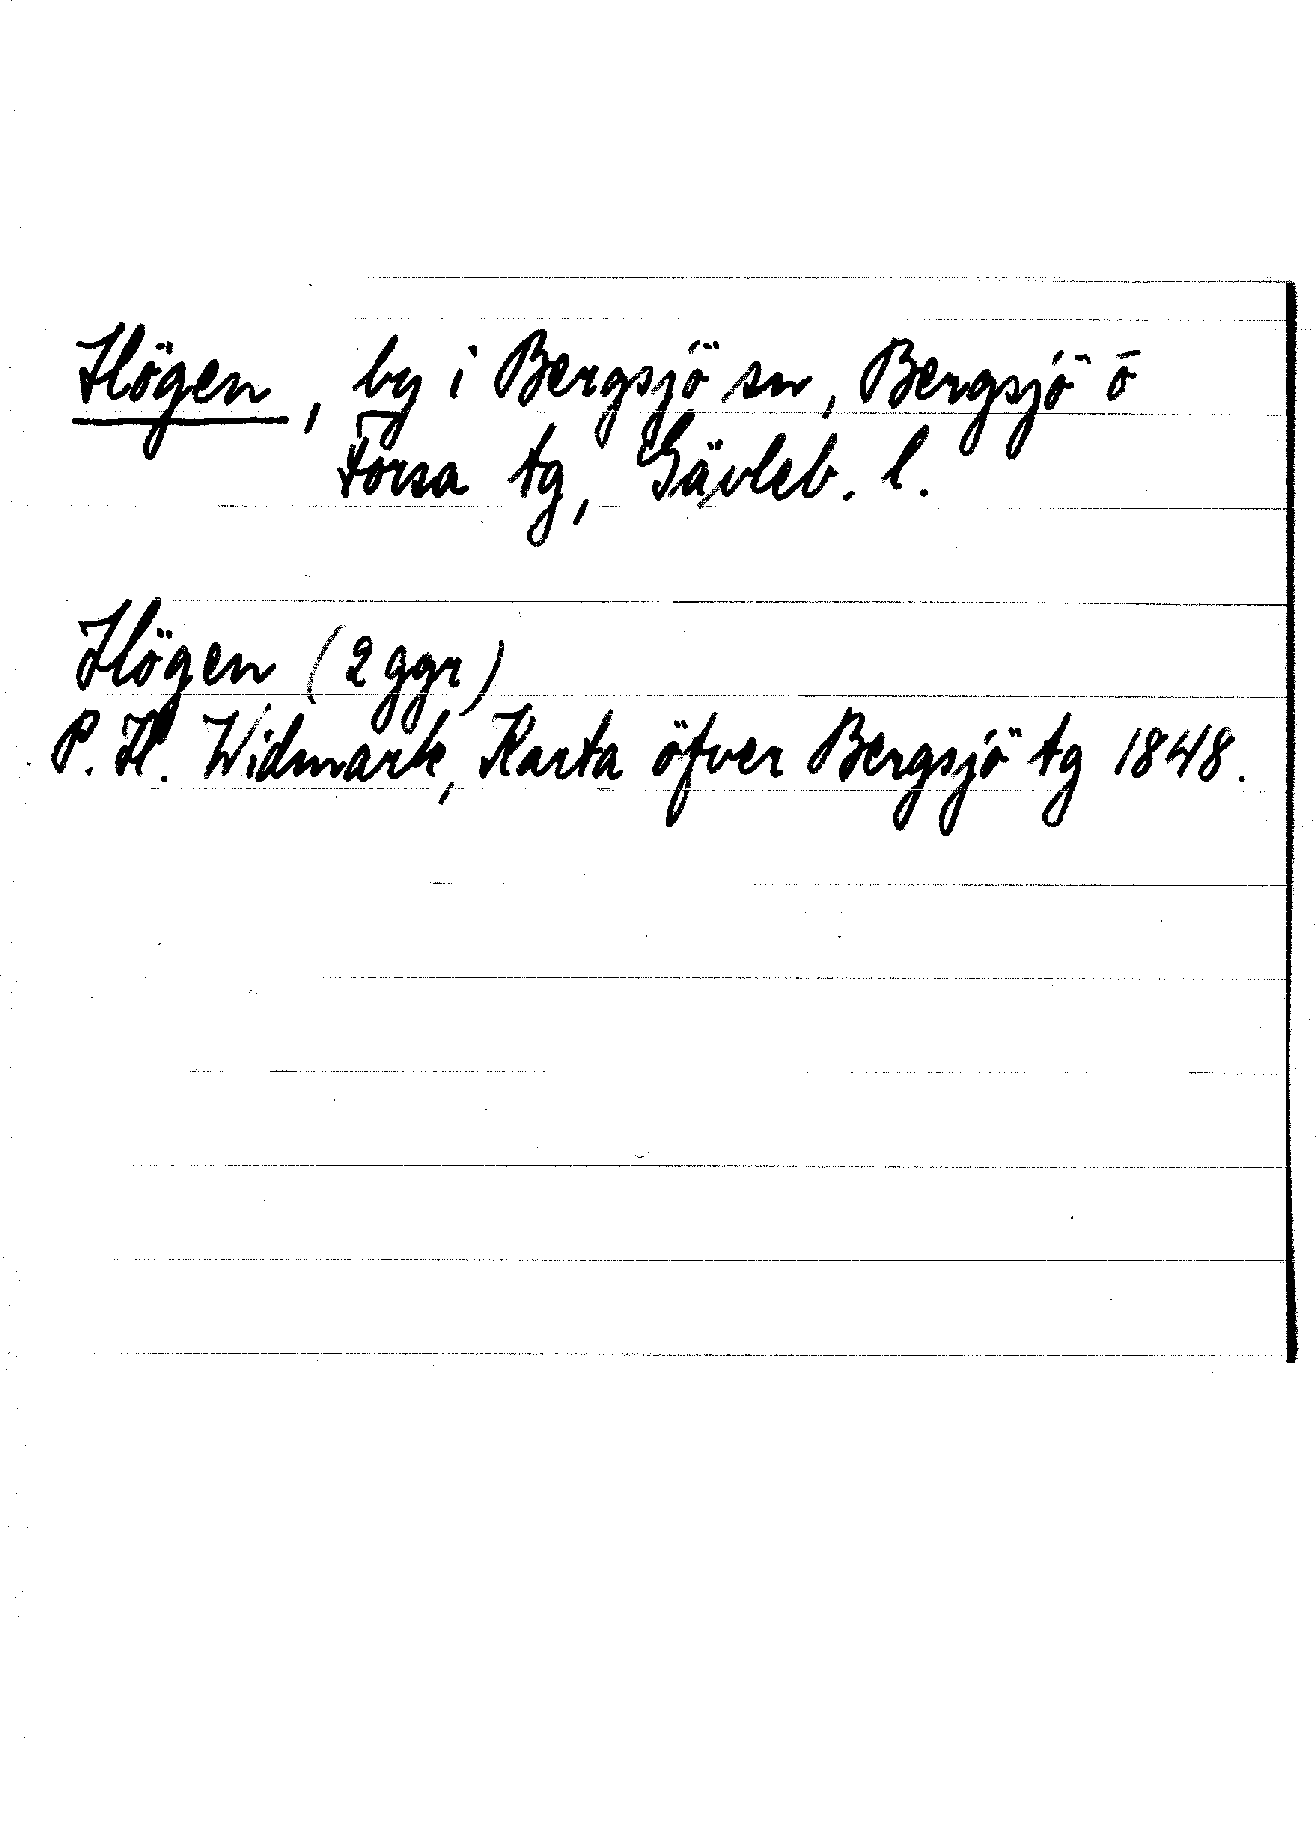 Högen, by i Bergsjö sn, Bergsjö o
Forsa tg, Gävleb. l.
Högen (2 ggr)
P. H. Widmark, Karta öfver Bergsjö tg 1848.